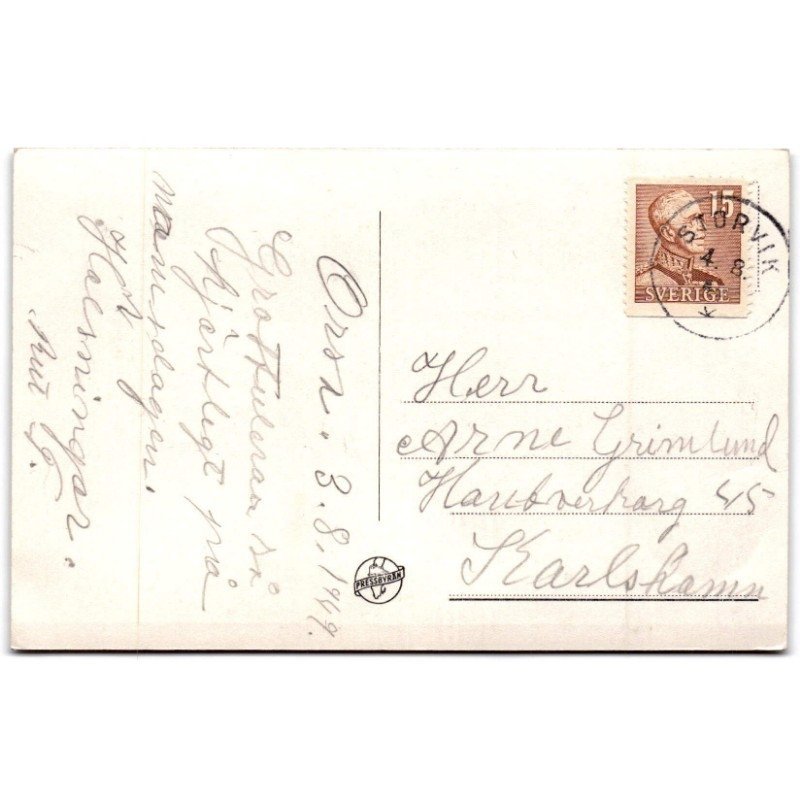 Orsa. 3.8.1949.
Grattulerar så
hjärtligt på
namnsdagen.
Hälsningar.
15
SVERIGE
STORVIK
4. 8.
Herr
Arne Grimlund
Hantverkarg 45
Karlshamn
PRESSBYRÅN